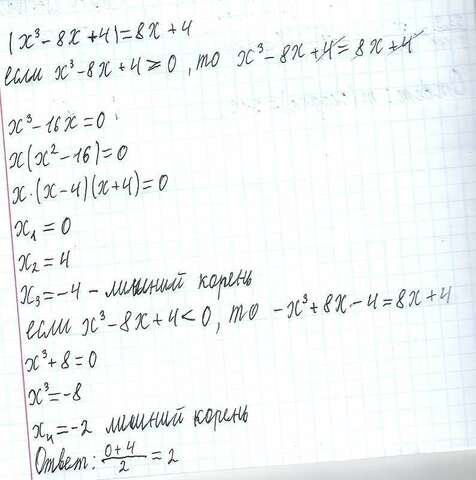 |x³-8x+4|=8x+4
если x³-8x+4≥0, то x³-8x+4=8x+4
x³-16x=0
x(x²-16)=0
x·(x-4)(x+4)=0
x₁=0
x₂=4
x₃=-4 - лишний корень
если x³-8x+4<0, то -x³+8x-4=8x+4
x³+8=0
x³=-8
x₄=-2 лишний корень
Ответ: (0+4)/2=2